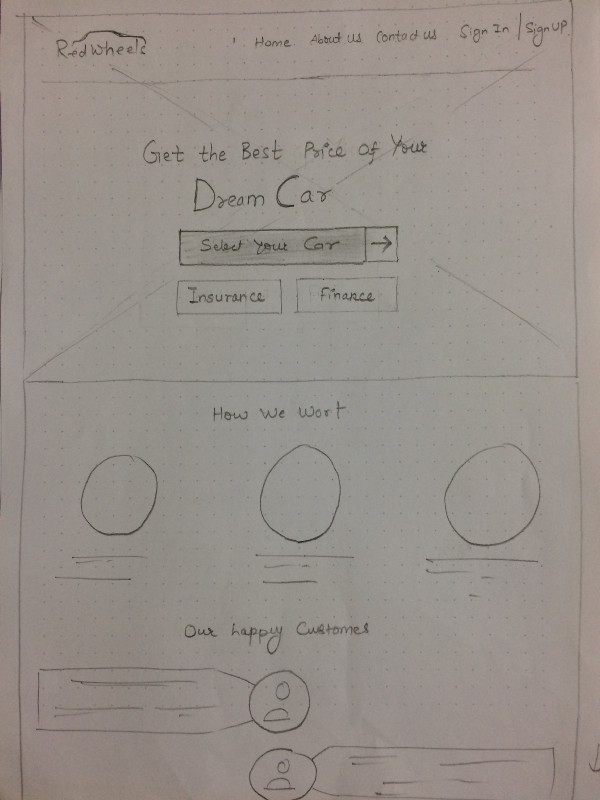 RedWheels
Home About Us Contact us Sign In / Sign UP
Get the Best Price of Your
Dream Car
Select Your Car →
Insurance Finance
How We Wort
Our happy Customes